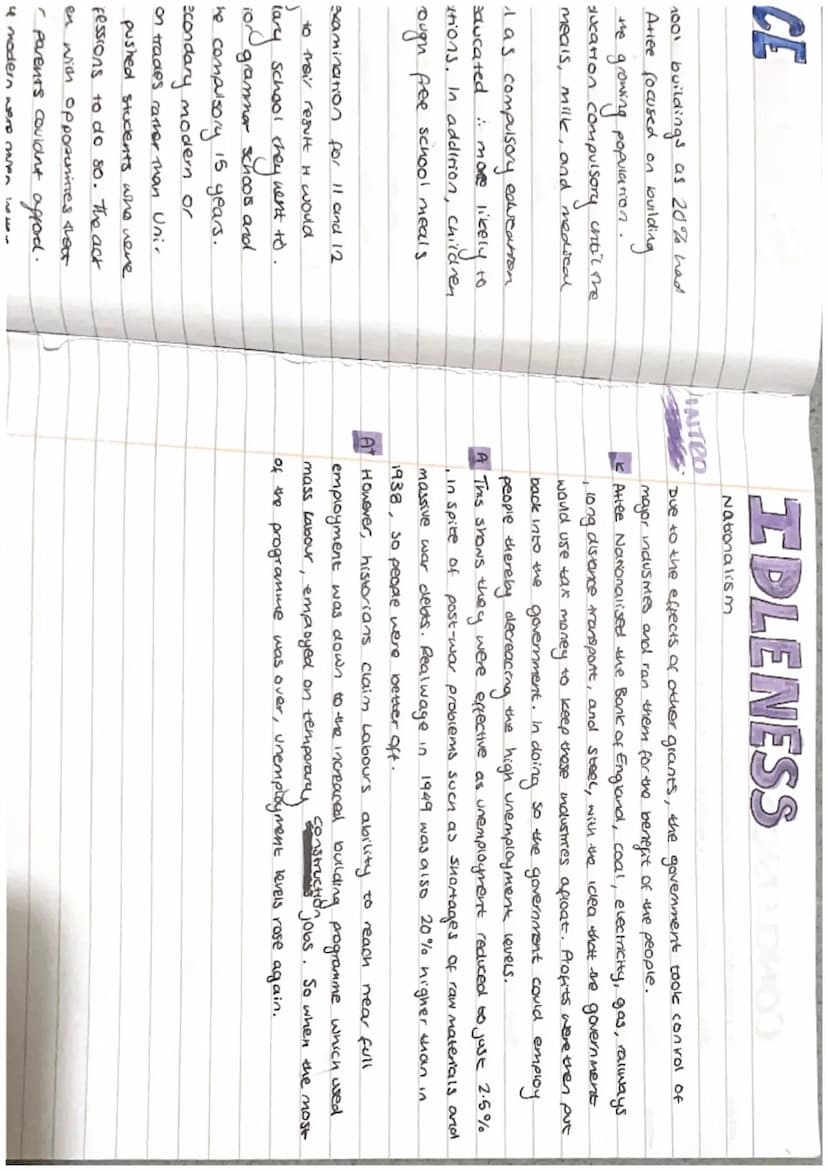 CE
ool buildings as 20% had
Atlee focused on building
the growing population.
ducation compulsory until the
meals, milk, and medical
as compulsory education
educated ∴ more likely to
tions. In addition, children
rough free school meals
examination for 11 and 12
to their result it would
dary school they went to.
grammar schools and
he compulsory 15 years.
econdary modern or
on trades rather than Uni.
pushed students who were
fessions to do so. The act
en with opportunities that
parents couldnt afford.
modern were
IDLENESS
Nationalism
INTRO
Due to the effects of other grants, the government took control of
major industries and ran them for the benefit of the people.
K Atlee Nationalised the Bank of England, coal, electricity, gas, railways
, long distance transport, and steel, with the idea that the government
would use tax money to keep these industries afloat. Profits were then put
back into the government. In doing so the government could employ
people thereby decreacing the high unemployment levels.
A This shows they were effective as unemployment reduced to just 2.5%
. In spite of post-war problems such as shortages of raw materials and
massive war debts. Real wage in 1949 was also 20% higher than in
1938, so people were better off.
A+ However, historians claim Labours ability to reach near full
employment was down to the increased building programme which used
mass labour, employed on temporary construction jobs. So when the most
of the programme was over, unemployment levels rose again.